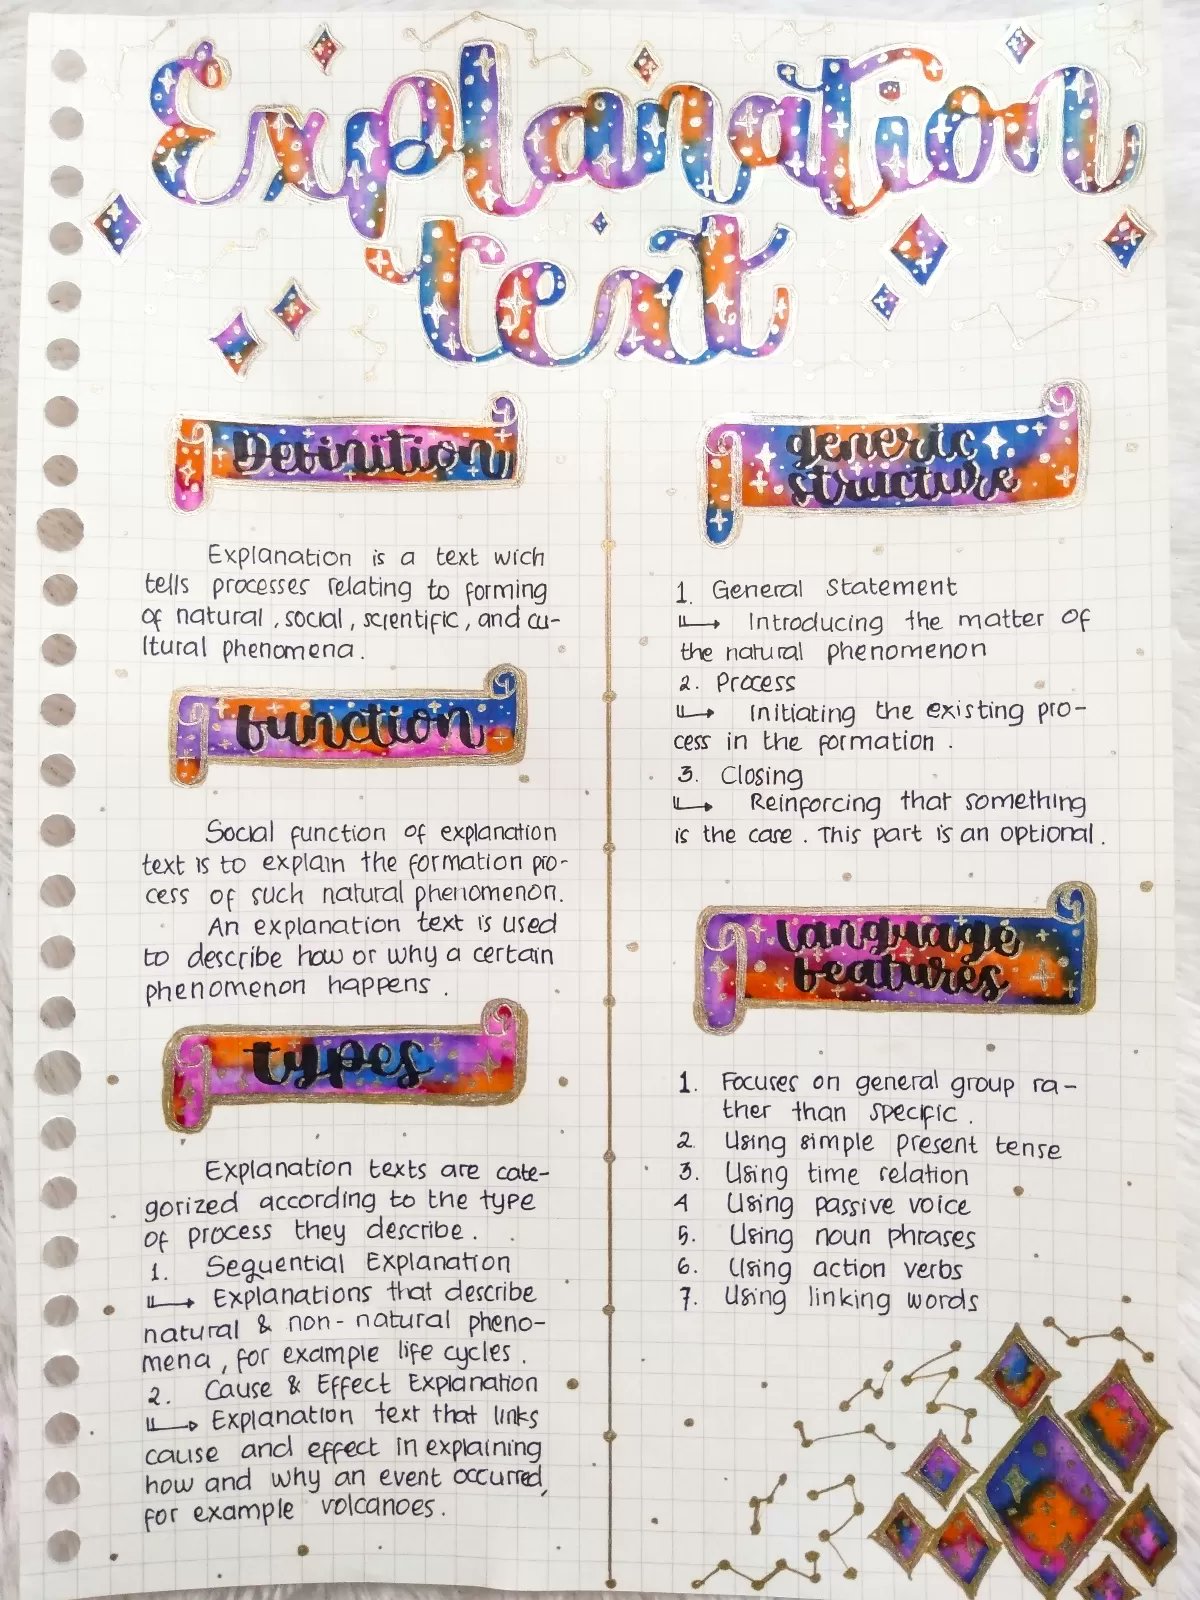 Explanation
text
Definition
Explanation is a text wich
tells processes relating to forming
of natural, social, scientific, and cu-
ltural phenomena.
function
Social function of explanation
text is to explain the formation pro-
cess of such natural phenomenon.
An explanation text is used
to describe how or why a certain
phenomenon happens.
types
Explanation texts are cate-
gorized according to the type
of process they describe.
1. Sequential Explanation
↳ Explanations that describe
natural & non-natural pheno-
mena, for example life cycles.
2. Cause & Effect Explanation
↳ Explanation text that links
cause and effect in explaining
how and why an event occurred,
for example volcanoes.
generic
structure
1. General Statement
↳ Introducing the matter of
the natural phenomenon
2. Process
↳ Initiating the existing pro-
cess in the formation.
3. Closing
↳ Reinforcing that something
is the case. This part is an optional.
language
features
1. Focuses on general group ra-
ther than specific.
2. Using simple present tense
3. Using time relation
4 Using passive voice
5. Using noun phrases
6. Using action verbs
7. Using linking words